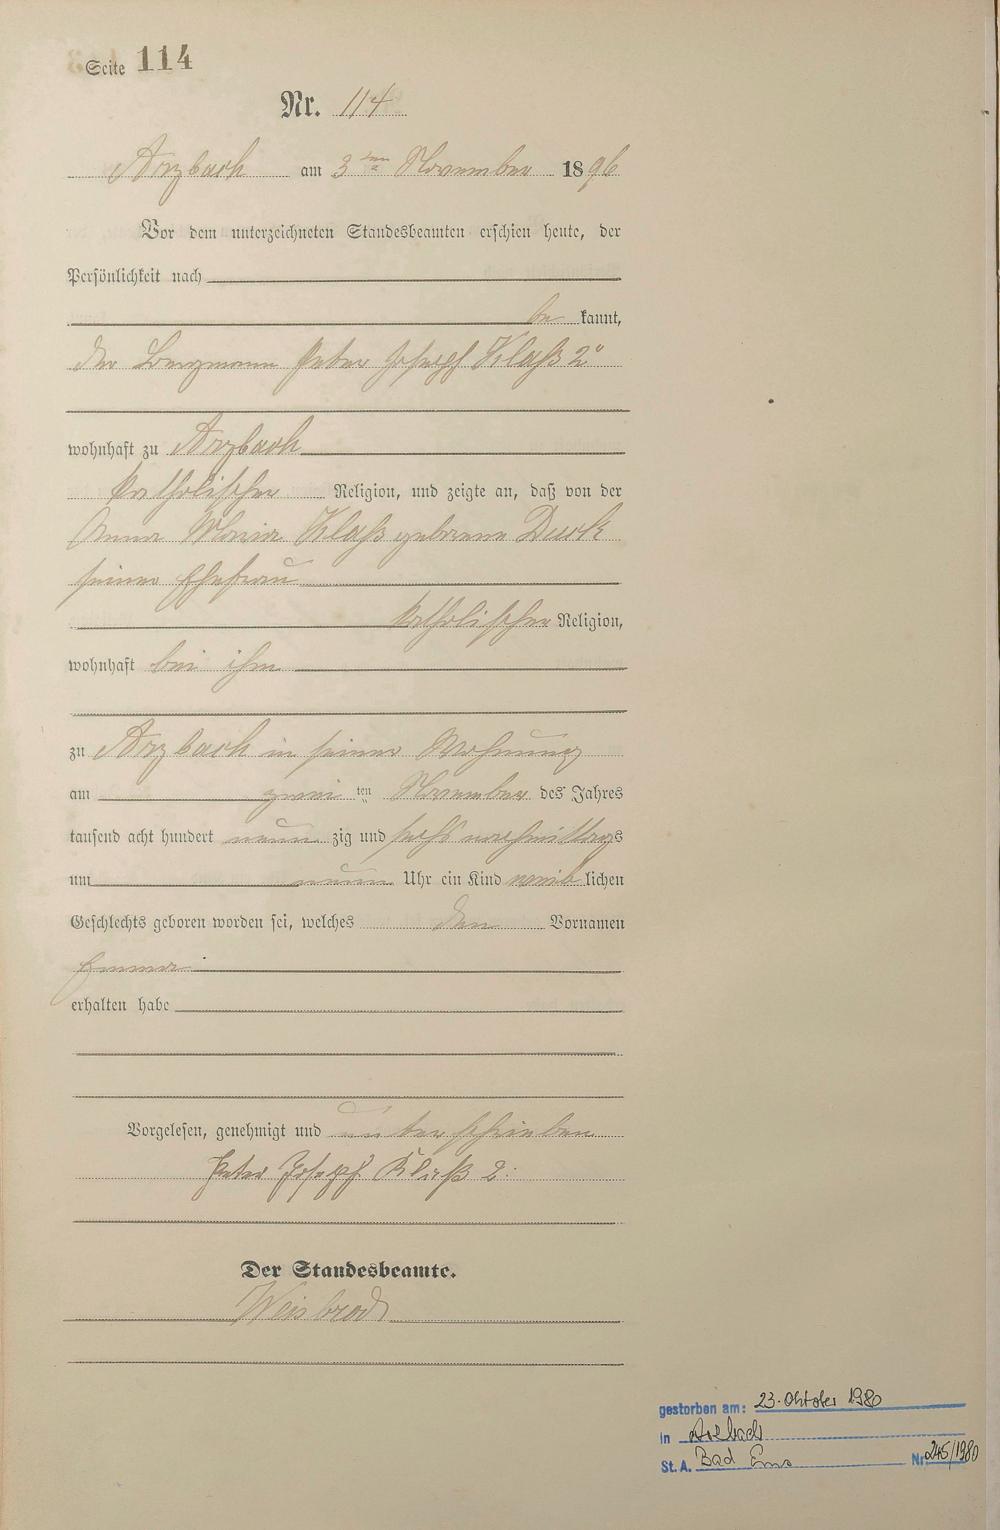 Seite 114
Nr. 114
Arzbach am 3ten November 1896
Vor dem unterzeichneten Standesbeamten erschien heute, der
Persönlichkeit nach
be kannt,
der Bergmann Peter Joseph Klaß 2°
wohnhaft zu Arzbach
katholischer Religion, und zeigte an, daß von der
Anna Maria Klaß geborene
seiner Ehefrau
katholischer Religion,
wohnhaft bei ihm
zu Arzbach in seiner Wohnung
am zwei ten November des Jahres
tausend acht hundert neun zig und sechs nachmittags
um neun Uhr ein Kind weib lichen
Geschlechts geboren worden sei, welches den Vornamen
Emma
erhalten habe
Vorgelesen, genehmigt und unterschrieben
Peter Joseph Klaß 2.
Der Standesbeamte.
Weisbrod
gestorben am: 23. Oktober 1980
in Arzbach
St. A. Bad Ems Nr. 245/1980